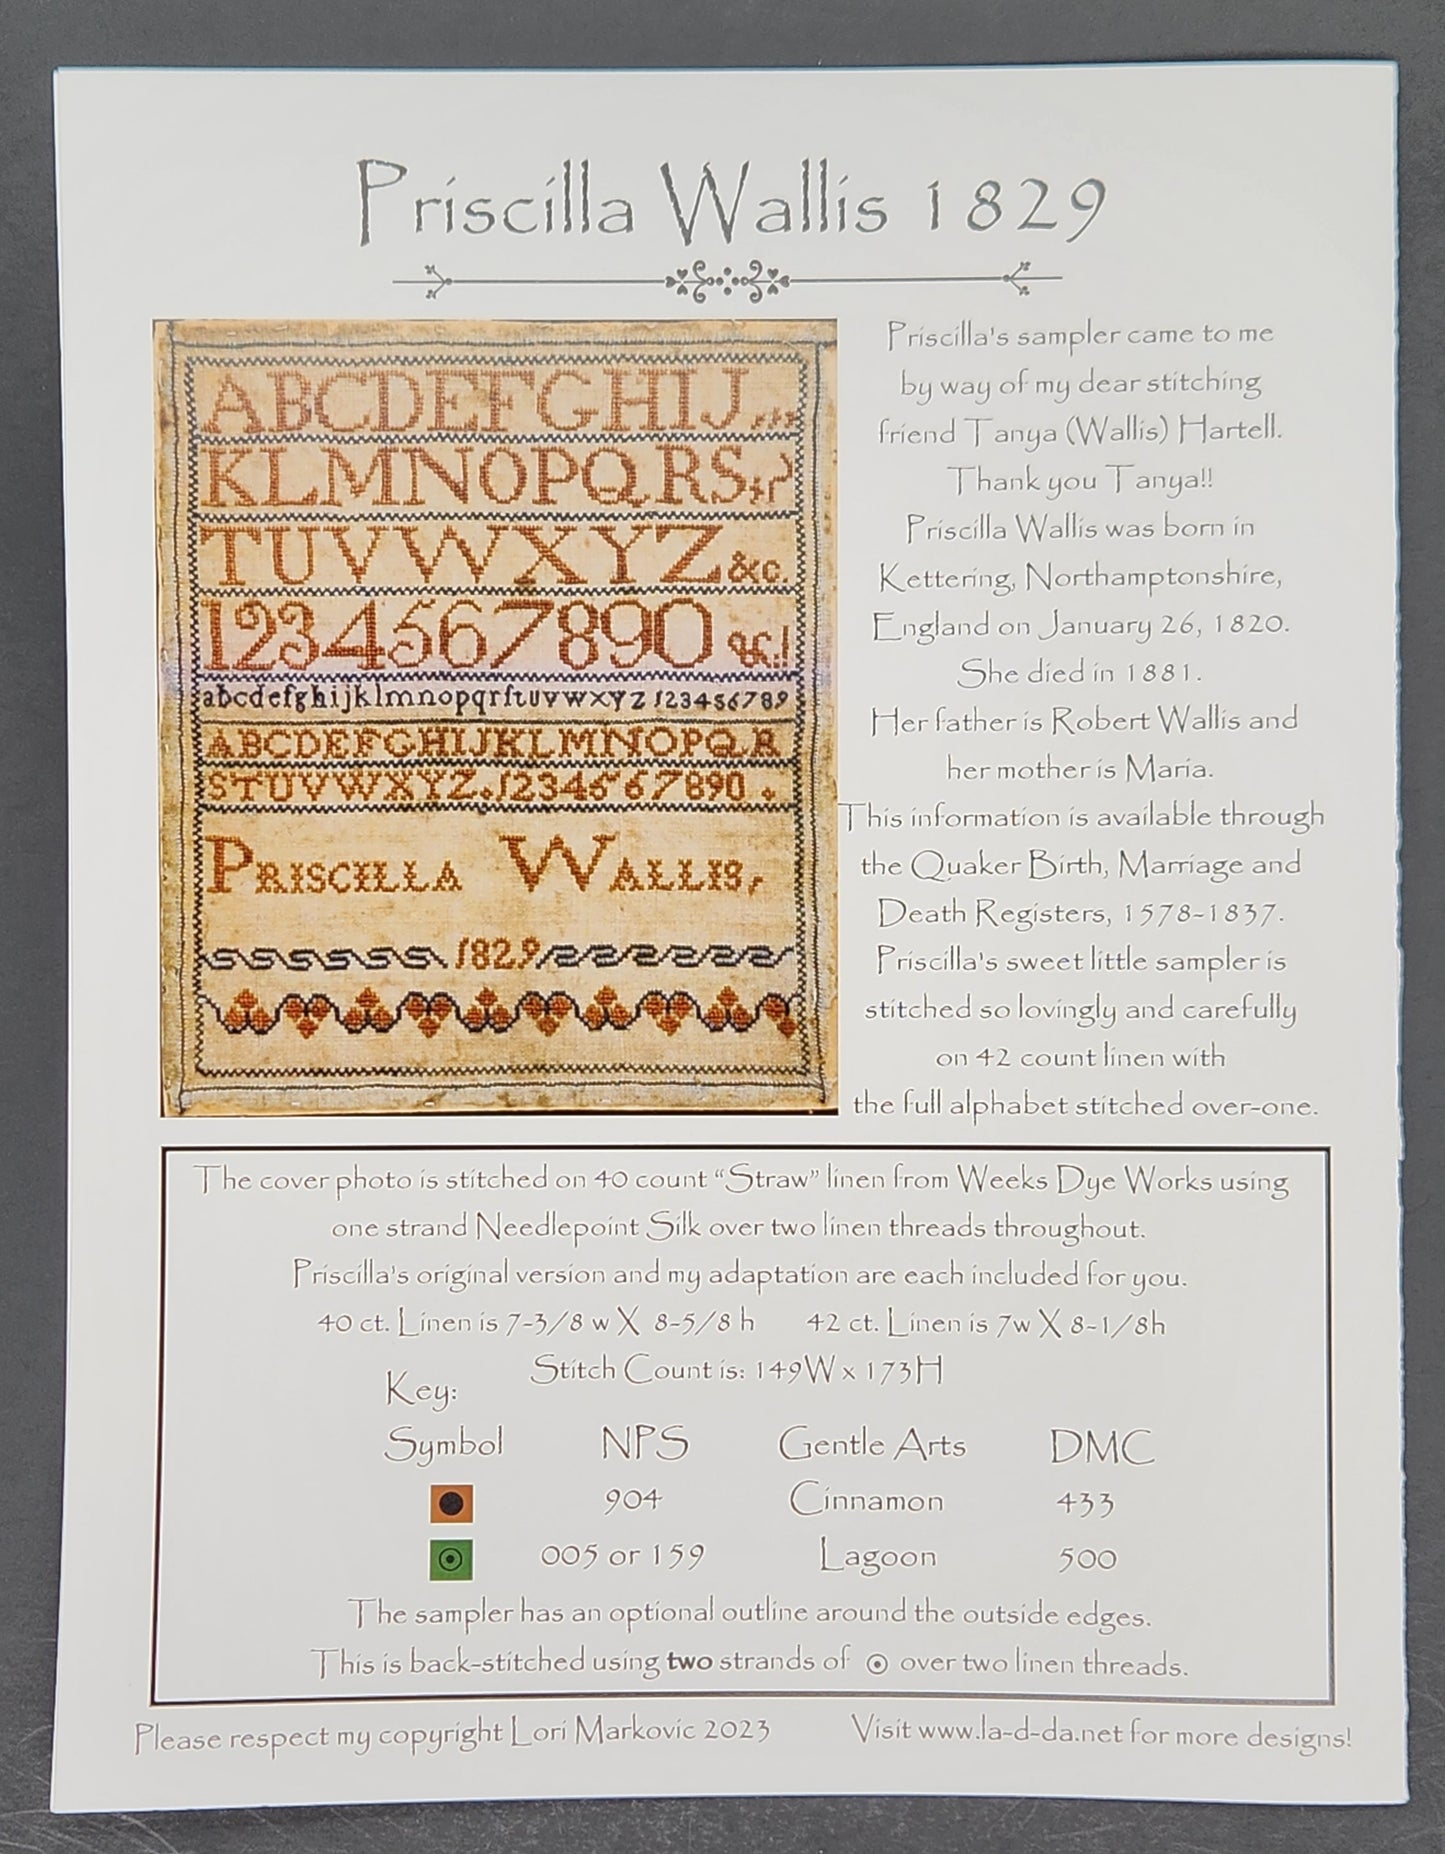 Priscilla Wallis 1829
ABCDEFGHIJ
KLMNOPQRS
TUVWXYZ &c.
1234567890 &c.!
abcdefghijklmnopqrſtuvwxyz 123456789
ABCDEFGHIJKLMNOPQR
STUVWXYZ.1234567890
PRISCILLA WALLIS,
1829
Priscilla's sampler came to me
by way of my dear stitching
friend Tanya (Wallis) Hartell.
Thank you Tanya!!
Priscilla Wallis was born in
Kettering, Northamptonshire,
England on January 26, 1820.
She died in 1881.
Her father is Robert Wallis and
her mother is Maria.
This information is available through
the Quaker Birth, Marriage and
Death Registers, 1578-1837.
Priscilla's sweet little sampler is
stitched so lovingly and carefully
on 42 count linen with
the full alphabet stitched over-one.
The cover photo is stitched on 40 count "Straw" linen from Weeks Dye Works using
one strand Needlepoint Silk over two linen threads throughout.
Priscilla's original version and my adaptation are each included for you.
40 ct. Linen is 7-3/8 w X 8-5/8 h 42 ct. Linen is 7w X 8-1/8h
Stitch Count is: 149W x 173H
Key:
Symbol NPS Gentle Arts DMC
904 Cinnamon 433
005 or 159 Lagoon 500
The sampler has an optional outline around the outside edges.
This is back-stitched using two strands of over two linen threads.
Please respect my copyright Lori Markovic 2023 Visit www.la-d-da.net for more designs!